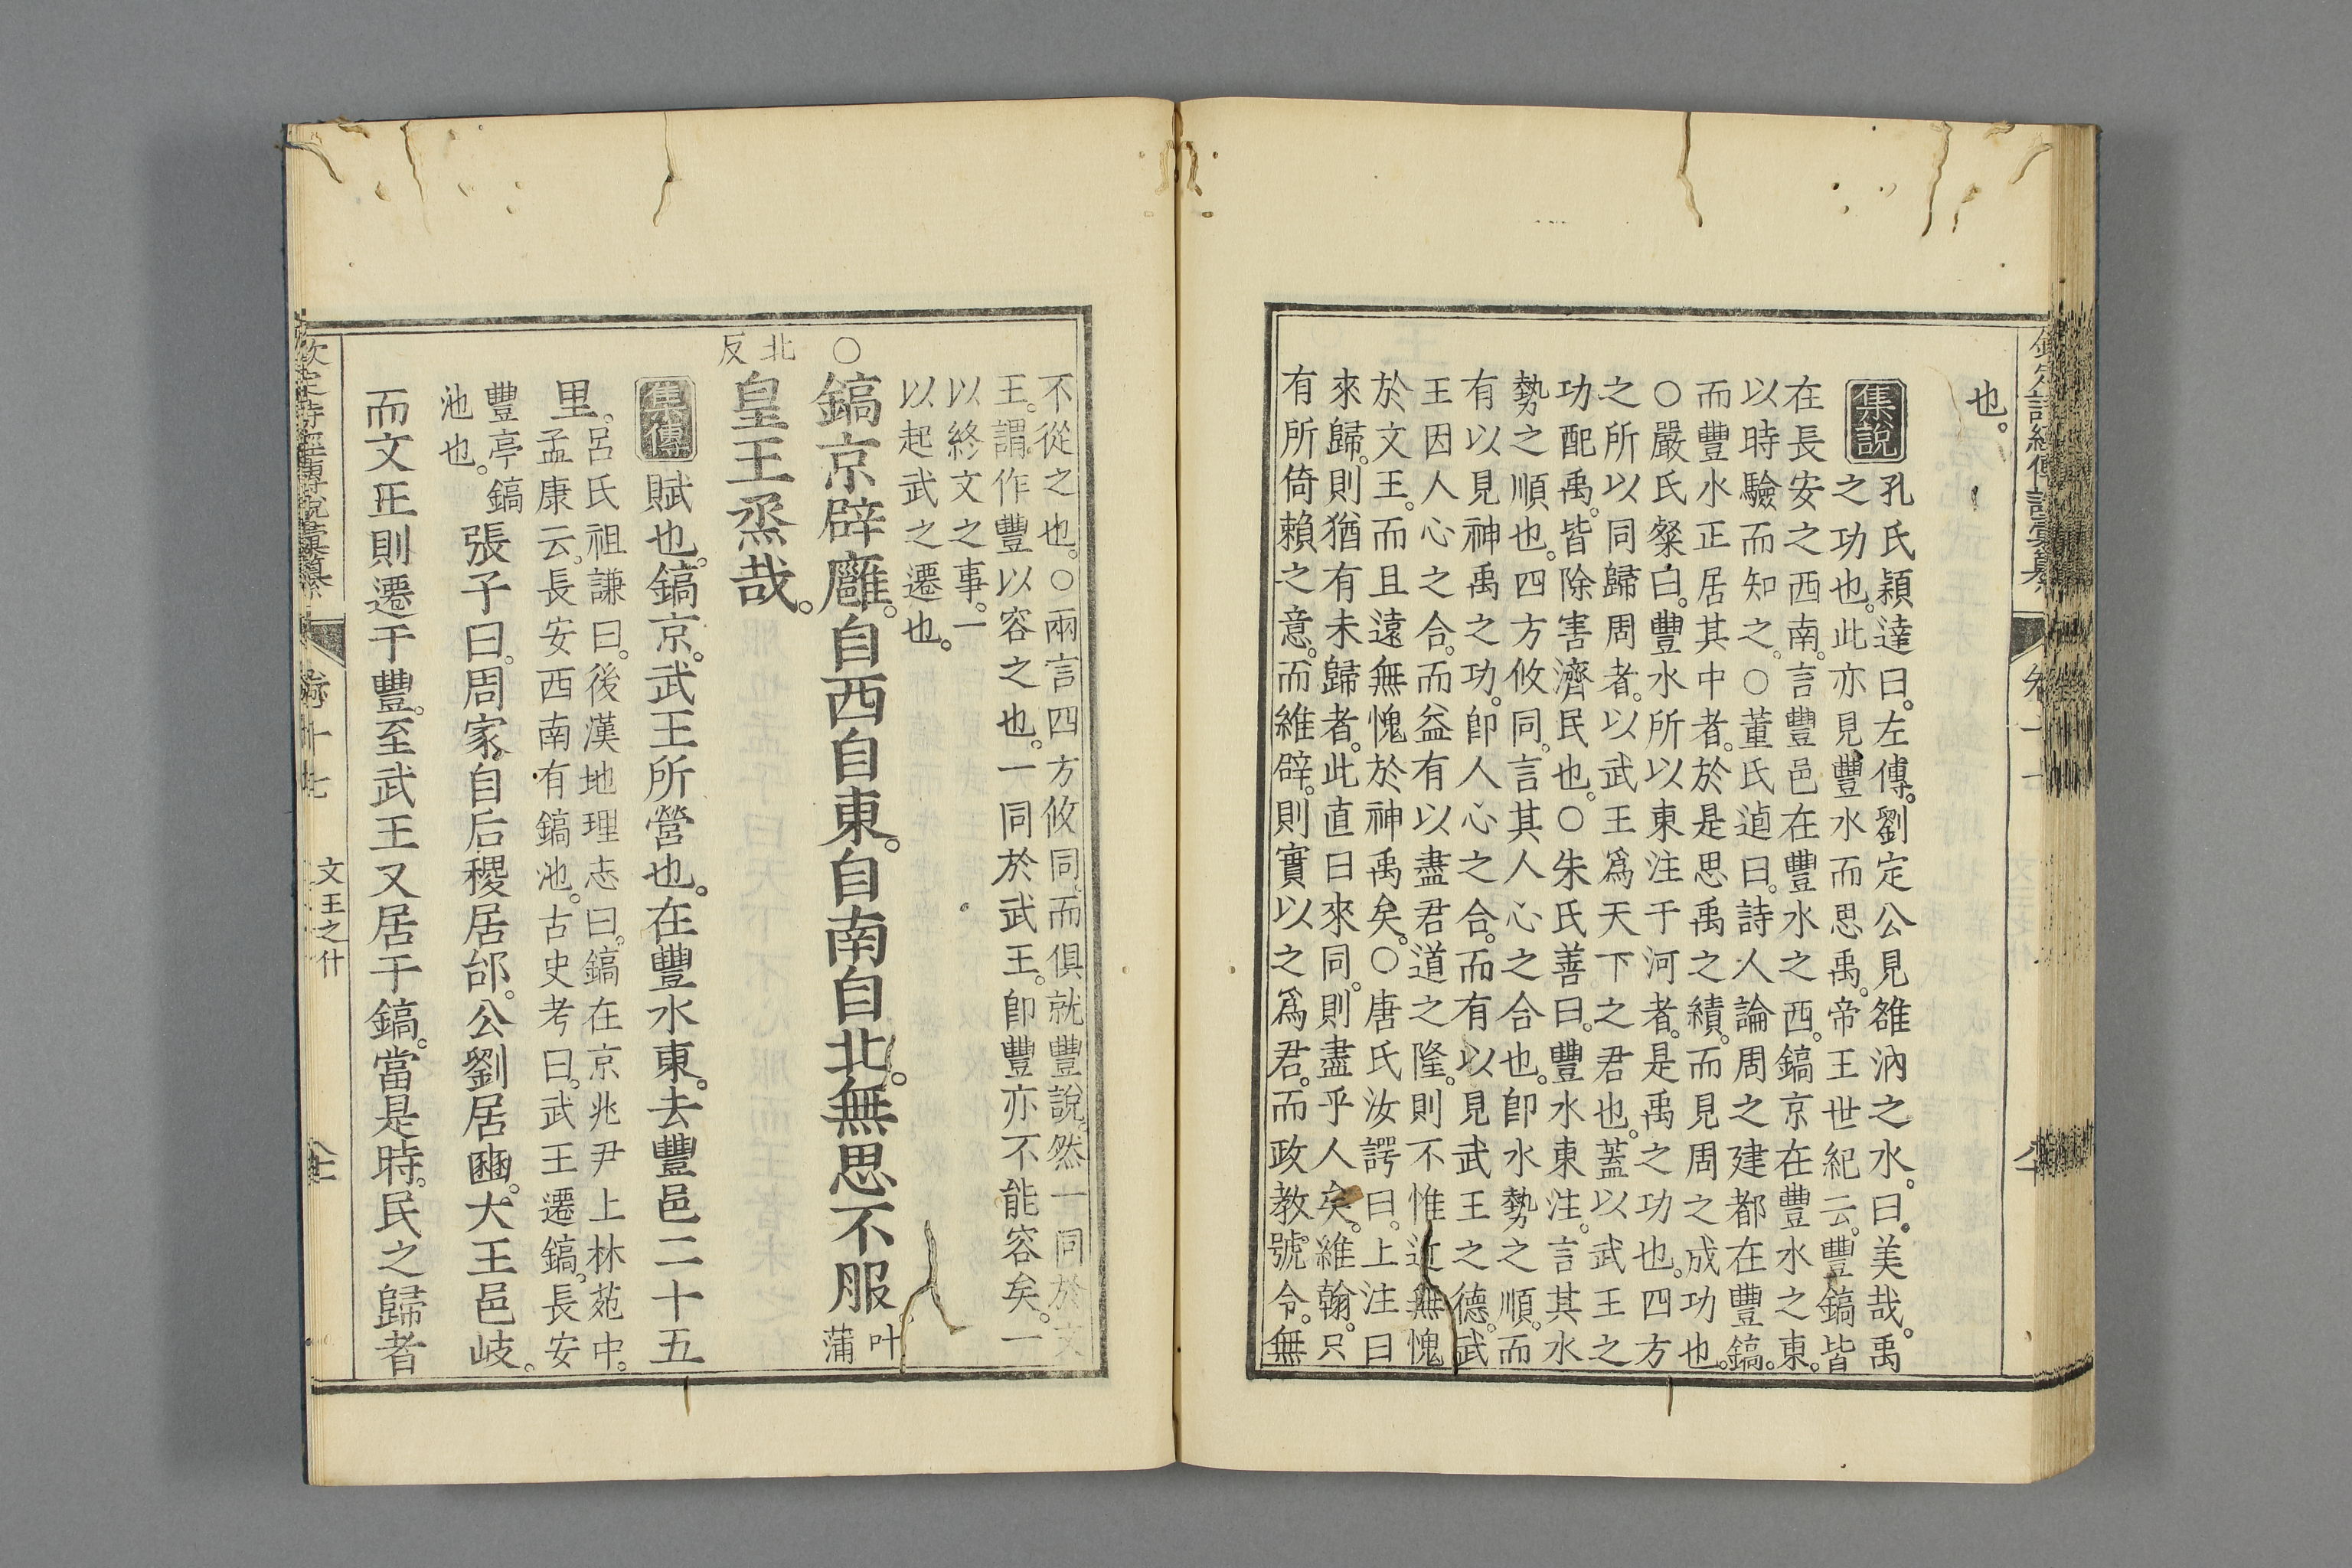 也。
集說
孔氏穎達曰。左傳。劉定公見雒汭之水。曰。美哉。禹
之功也。此亦見豐水而思禹。帝王世紀云。豐鎬皆
在長安之西南。言豐邑在豐水之西。鎬京在豐水之東。
以時驗而知之。○董氏逌曰。詩人論周之建都在豐鎬。
而豐水正居其中者。於是思禹之績。而見周之成功也。
○嚴氏粲曰。豐水所以東注于河者。是禹之功也。四方
之所以同歸周者。以武王爲天下之君也。蓋以武王之
功配禹。皆除害濟民也。○朱氏善曰。豐水東注。言其水
勢之順也。四方攸同。言其人心之合也。卽水勢之順。而
有以見神禹之功。卽人心之合。而有以見武王之德。武
王因人心之合。而益有以盡君道之隆。則不惟近無愧
於文王。而且遠無愧於神禹矣。○唐氏汝諤曰。上注曰
來歸。則猶有未歸者。此直曰來同。則盡乎人矣。維翰。只
有所倚賴之意。而維辟。則實以之爲君。而政教號令。無
不從之也。○兩言四方攸同。而俱就豐說。然一同於文
王。謂作豐以容之也。一同於武王。卽豐亦不能容矣。一
以終文之事。一
以起武之遷也。
○鎬京辟廱。自西自東。自南自北。無思不服。叶蒲
北反皇王烝哉。
集傳賦也。鎬京。武王所營也。在豐水東。去豐邑二十五
里。呂氏祖謙曰。後漢地理志曰。鎬在京兆尹上林苑中。
孟康云。長安西南有鎬池。古史考曰。武王遷鎬。長安
豐亭鎬
池也。張子曰。周家自后稷居邰。公劉居豳。大王邑岐。
而文王則遷于豐。至武王又居于鎬。當是時。民之歸者
欽定詩經傳說彙纂
卷十七
文王之什